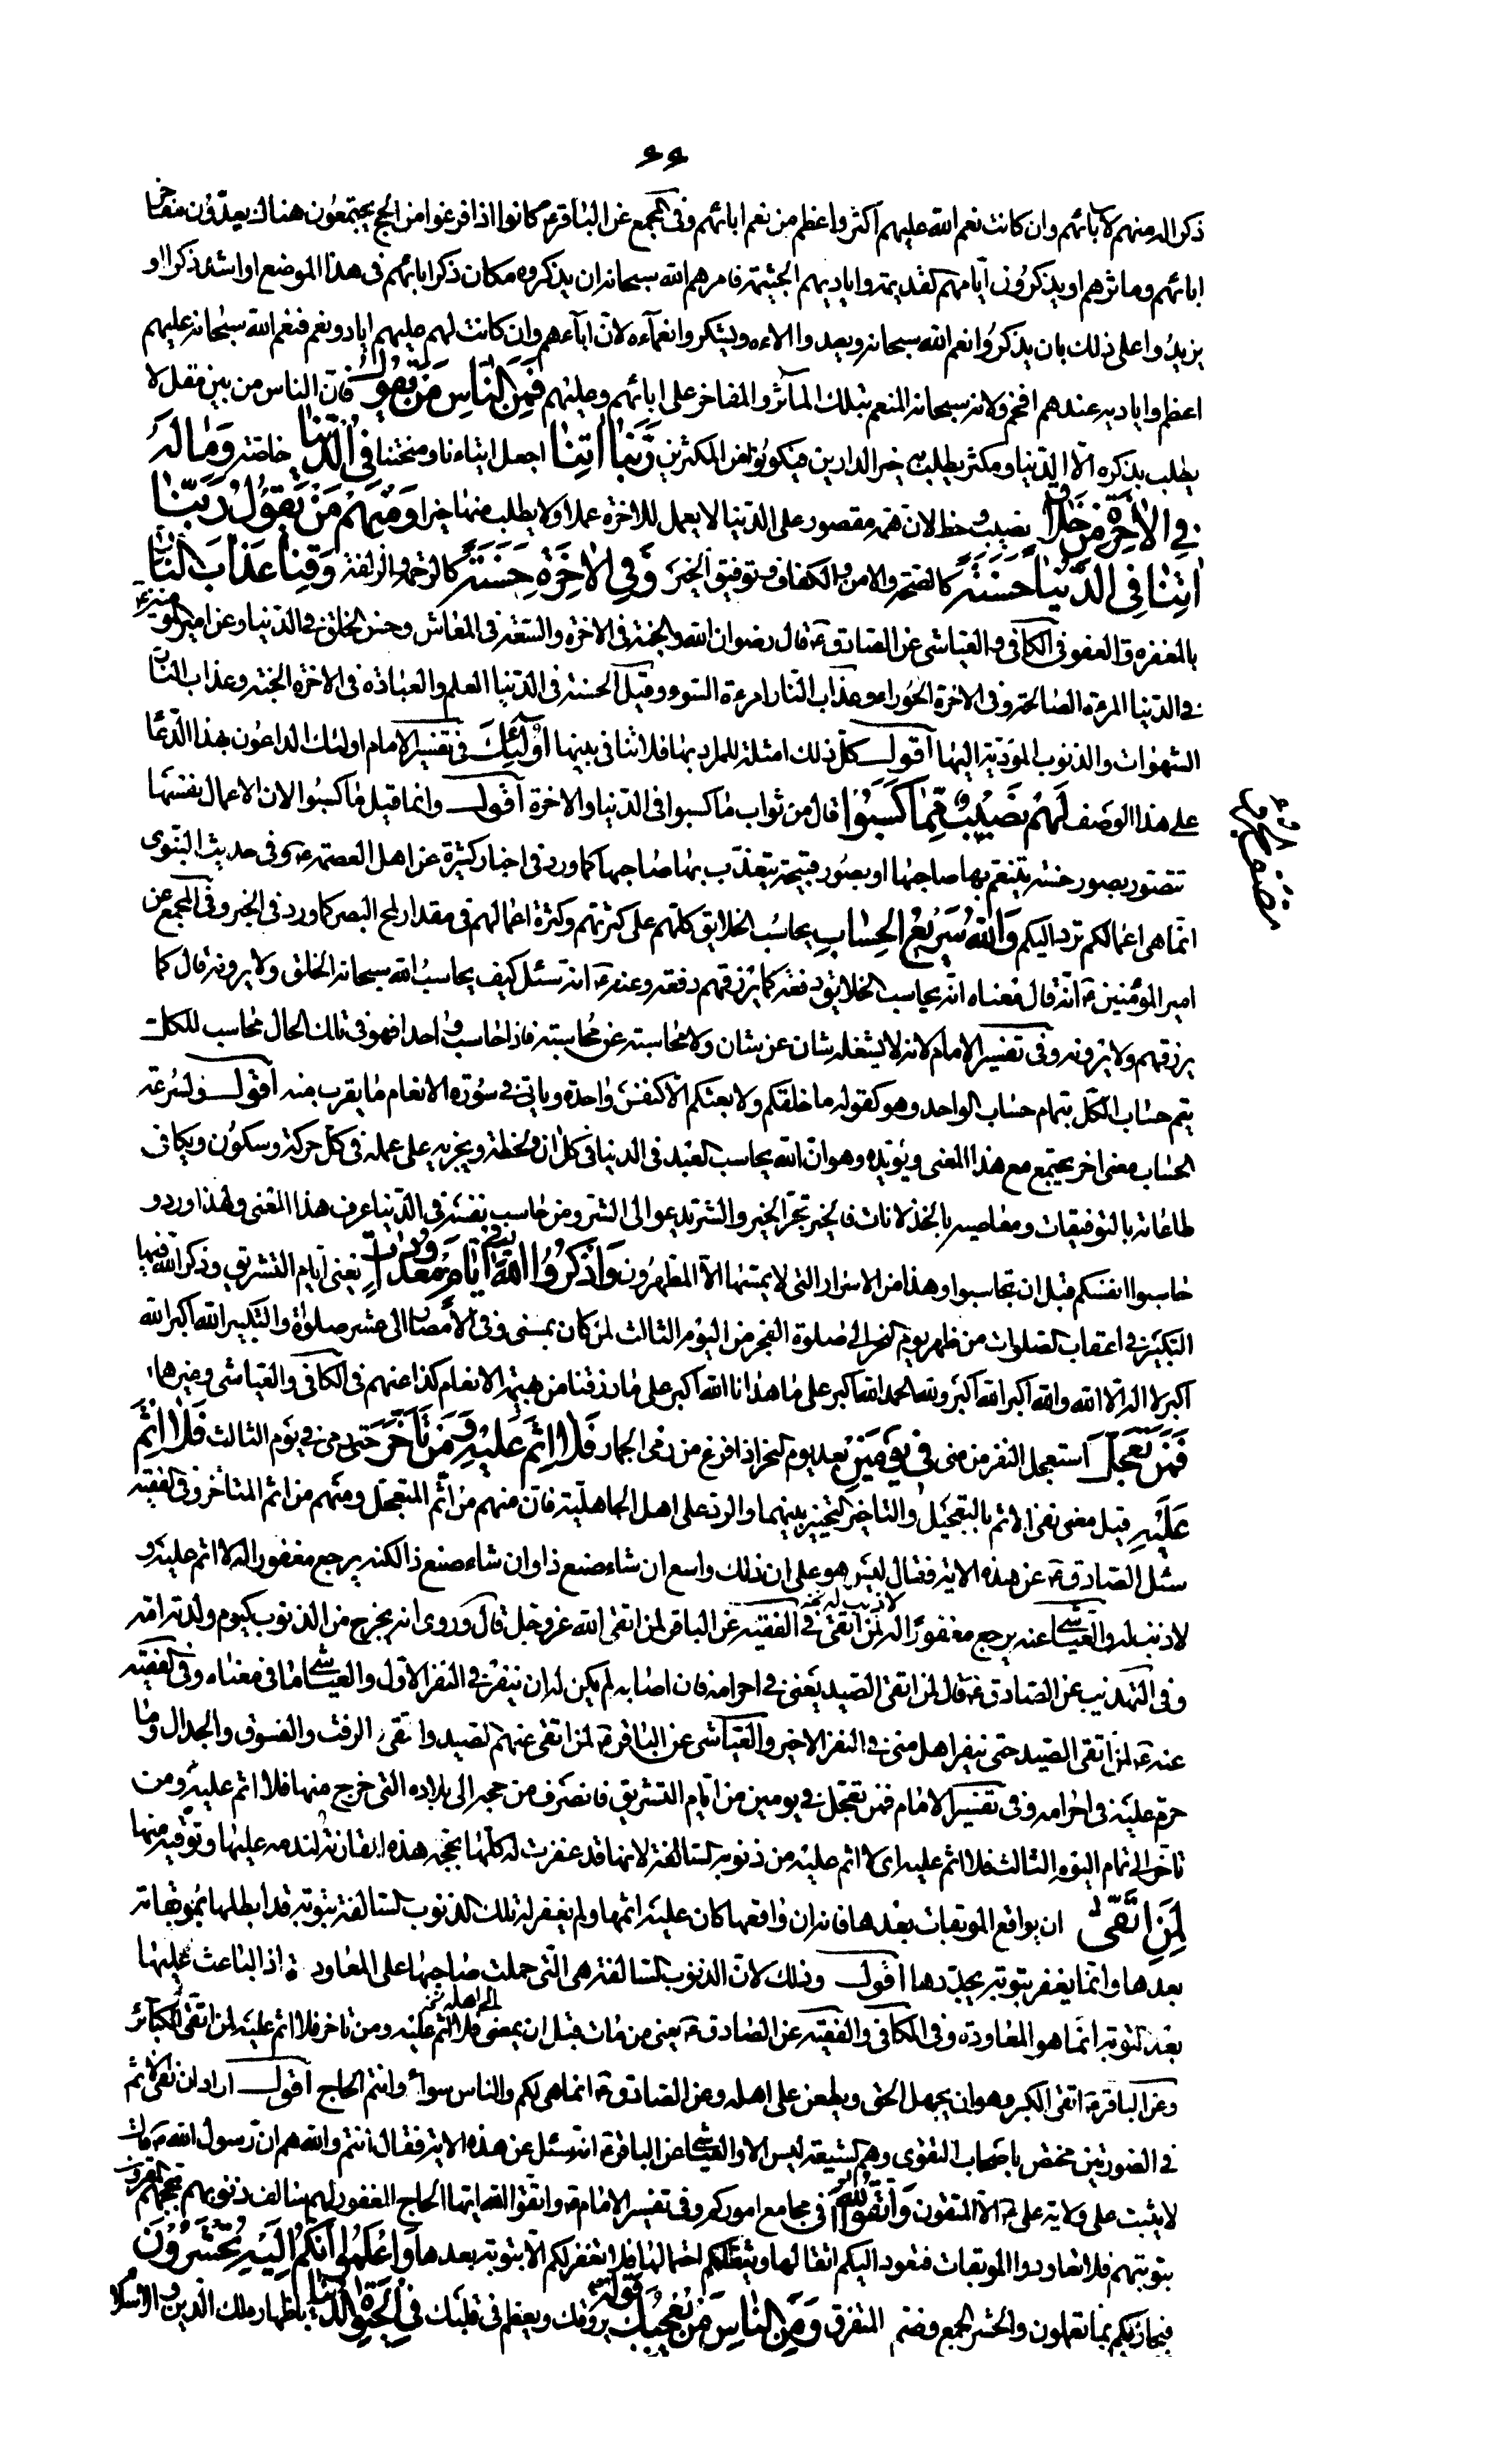 ۶۶
ذكر الله منهم لآبائهم وان كانت نعم الله عليهم اكثر واعظم من نعم ابائهم وفى المجمع عن الباقرع كانوا اذا فرغوا من الحج يجتمعون هناك يعدّون مفاخر
ابائهم وماثرهم ويذكرون ايّامهم القديمة واياديهم الجسيمة فامرهم الله سبحانه ان يذكروه مكان ذكر ابائهم فى هذا الموضع او اشد ذكرا او
يزيدوا على ذلك بان يذكروا نعم الله سبحانه ويعدوا الاءه ويشكروا نعمآءه لانّ ابآءهم وان كانت لهم عليهم اياد ونعم فنعم الله سبحانه عليهم
اعظم واياديه عندهم افخم ولانه سبحانه المنعم بتلك المآثر والمفاخر على ابائهم وعليهم فَمِنَ النّاسِ مَنْ يَقُولُ فانّ الناس من بين مقل لا
يطلب بذكره الّا الدّنيا ومكثر يطلب به خير الدارين فيكونوا من المكثرين رَبَّنا اتِنا اجعل ايتاءنا ومنحتنا فِى الدُّنْيا خاصّة وَما لَهُ
فِي الْاخِرَةِ مِنْ خَلاقٍ نصيب وحظ لانّ همّه مقصور على الدّنيا لا يعمل للاخرة عملا ولا يطلب منها خيرا وَمِنْهُمْ مَنْ يَقُولُ رَبَّنا
اتِنا فِى الدُّنْيا حَسَنَةً كالصّحة والامن والكفاف وتوفيق الخير وَفِي الْاخِرَةِ حَسَنَةً كالرّحمة والزلفة وَقِنا عَذابَ النّارِ
بالمغفرة والعفو فى الكافى والعيّاشى عن الصّادق ع قال رضوان الله والجنّة فى الاخرة والسّعة فى المعاش وحسن الخلق فى الدّنيا وعن امير المؤمنين ع
فى الدّنيا المرءة الصّالحة وفى الاخرة الحَوراء وعذاب النّار امرءة السّوء وقيل الحسنة فى الدّنيا العلم والعبادة فى الاخرة الجنّة وعذاب النّار
الشهوات والذنوب المؤدّية اليها اقول كلّ ذلك امثلة للمراد بها فلا تنافى بينها اُولٰئِكَ فى تفسير الامام اولئك الداعون بهذا الدّعا
على هذا الوصف لَهُمْ نَصيبٌ مِمّا كَسَبُوا قال من ثواب ما كسبوا فى الدّنيا والاخرة اقول وانما قيل مما كسبوا لان الاعمال بنفسها
تتصوّر بصور حسنة يتنعّم بها صاحبها او بصور قبيحة يتعذّب بها صاحبها كما ورد فى اخبار كثيرة عن اهل العصمة ع وفى حديث النّبوى
انّما هى اعمالكم تردّ اليكم وَاللهُ سَريعُ الْحِسابِ يحاسب الخلايق كلّهم على كثرتهم وكثرة اعمالهم فى مقدار لمح البصر كما ورد فى الخبر وفى المجمع عن
امير المؤمنين ع انّه قال معناه انّه يحاسب الخلايق دفعة كما يرزقهم دفعة وعنه ع انّه سئل كيف يحاسب الله سبحانه الخلق ولا يرونه قال كما
يرزقهم ولا يرونه وفى تفسير الامام لانه لا يشغله شان عن شان ولا محاسبة عن محاسبة فاذا حاسب واحدا فهو فى تلك الحال محاسب للكلّ
يتم حساب الكلّ بتمام حساب الواحد وهو كقوله ما خلقكم ولا بعثكم الّا كنفس واحدة وياتى فى سورة الانعام ما يقرب منه اقول ولسرعة
الحساب معنى اخر يجتمع مع هذا المعنى ويؤيّده وهو انّ الله يحاسب العبد فى الدنيا فى كل ان ولحظة ويجزيه على عمله فى كلّ حركة وسكون ويكافى
طاعاته بالتوفيقات ومعاصيه بالخذلانات فالخير يجرّ الخير والشرّ يدعو الى الشرّ ومن حاسب نفسه فى الدّنيا عرف هذا المعنى ولهذا ورد و
حاسبوا انفسكم قبل ان تحاسبوا وهذا من الاسرار التى لا يمسّها الّا المطهرون وَاذْكُرُوا اللهَ فى اَيّامٍ مَعْدُوداتٍ يعنى ايّام التشريق وذكر الله فيها
التكبير فى اعقاب الصلوات من ظهر يوم النحر الى صلوة الفجر من اليوم الثالث لمن كان بمنى وفى الامصار الى عشر صلوات والتكبير الله اكبر الله
اكبر لا اله الا الله والله اكبر الله اكبر ولله الحمد الله اكبر على ما هدانا الله اكبر على ما رزقنا من بهيمة الانعام كذا عنهم فى الكافى والعيّاشى وغيرهما
فَمَنْ تَعَجَّلَ استعجل النفر من منى فى يَوْمَيْنِ بعد يوم النحر اذا فرغ من رمى الجمار فَلا اِثْمَ عَلَيْهِ وَمَنْ تَاَخَّرَ حتى رمى فى يوم الثالث فَلا اِثْمَ
عَلَيْهِ قيل معنى نفى الاثم بالتعجيل والتاخير التخيير بينهما والرد على اهل الجاهليّة فانّ منهم من اثّم المتعجّل ومنهم من اثم المتاخر وفى الفقيه
سئل الصّادق ع عن هذه الاية فقال ليس هو على ان ذلك واسع ان شاء صنع ذا وان شاء صنع ذا لكنه يرجع مغفورا له لا اثم عليه و
لا ذنب له والعيّاشى عنه يرجع مغفورًا له لا ذنب له لِمَنِ اتَّقى فى الفقيه عن الباقر لمن اتقى الله عزّ وجلّ قال وروى انه يخرج من الذنوب كيوم ولدته امّه
وفى التهذيب عن الصّادق ع قال لمن اتقى الصّيد يعنى فى احرامه فان اصابه لم يكن له ان ينفر فى النفر الاوّل والعيّاشى ما فى معناه وفى الفقيه
عنه ع لمن اتقى الصّيد حتى ينفر اهل منى فى النفر الاخير والعيّاشى عن الباقر ع لمن اتقى منهم الصّيد واتقى الرفث والفسوق والجدال وما
حرّم عليه فى احرامه وفى تفسير الامام فمن تعجّل فى يومين من ايّام التشريق فانصرف من حجه الى بلاده التى خرج منها فلا اثم عليه ومن
تاخّر الى تمام اليوم الثالث فلا اثم عليه اى لا اثم عليه من ذنوبه السّالفة لانها قد غفرت له كلّها بحجته هذه المقارنة لندمه عليها وتوقيه منها
لِمَنِ اتَّقى ان يواقع الموبقات بعدها فانه ان واقعها كان عليه اثمها ولم يغفر له تلك الذنوب السّالفة بتوبة قد ابطلها بموبقاته
بعدها وانّما يغفر بتوبة يجدّدها اقول وذلك لانّ الذنوب السّالفة هى الّتى حملت صاحبها على المعاودة اذ الباعث عليها
بعد التوبة انّما هو المعاودة وفى الكافى والفقيه عن الصّادق ع يعنى من مات قبل ان يمضى الى اهله فلا اثم عليه ومن تاخر فلا اثم عليه لمن اتّقى الكبائر
وعن الباقر ع اتّقى الكبر وهو ان يجهل الحق ويطعن على اهله وعن الصّادق ع انما هى لكم والناس سواد وانتم الحاج اقول اراد ان نفى الاثم
فى الصورتين مختص باصحاب التقوى وهم الشيعة ليس الّا والعيّاشى عن الباقر ع انّه سئل عن هذه الاية فقال انتم والله هم انّ رسول الله ص قال
لا يثبت على ولاية على ع الّا المتقون وَاتَّقُوا اللهَ فى مجامع اموركم وفى تفسير الامام ع واتقوا الله ايّها الحاج المغفور لهم سالف ذنوبهم بحجهم المقرون
بتوبتهم فلا تعاودوا الموبقات فتعود اليكم اثقالها ويثقلكم احتمالها فلا تغفر لكم الّا بتوبة بعدها وَاعْلَمُوا اَنَّكُمْ اِلَيْهِ تُحْشَرُونَ
فيجازيكم بما تعملون والحشر الجمع وضم المتفرق وَمِنَ النّاسِ مَنْ يُعْجِبُكَ قَوْلُهُ يروقك ويعظم فى قلبك فِى الْحَيٰوةِ الدُّنْيا باظهاره لك الدين والاسلام